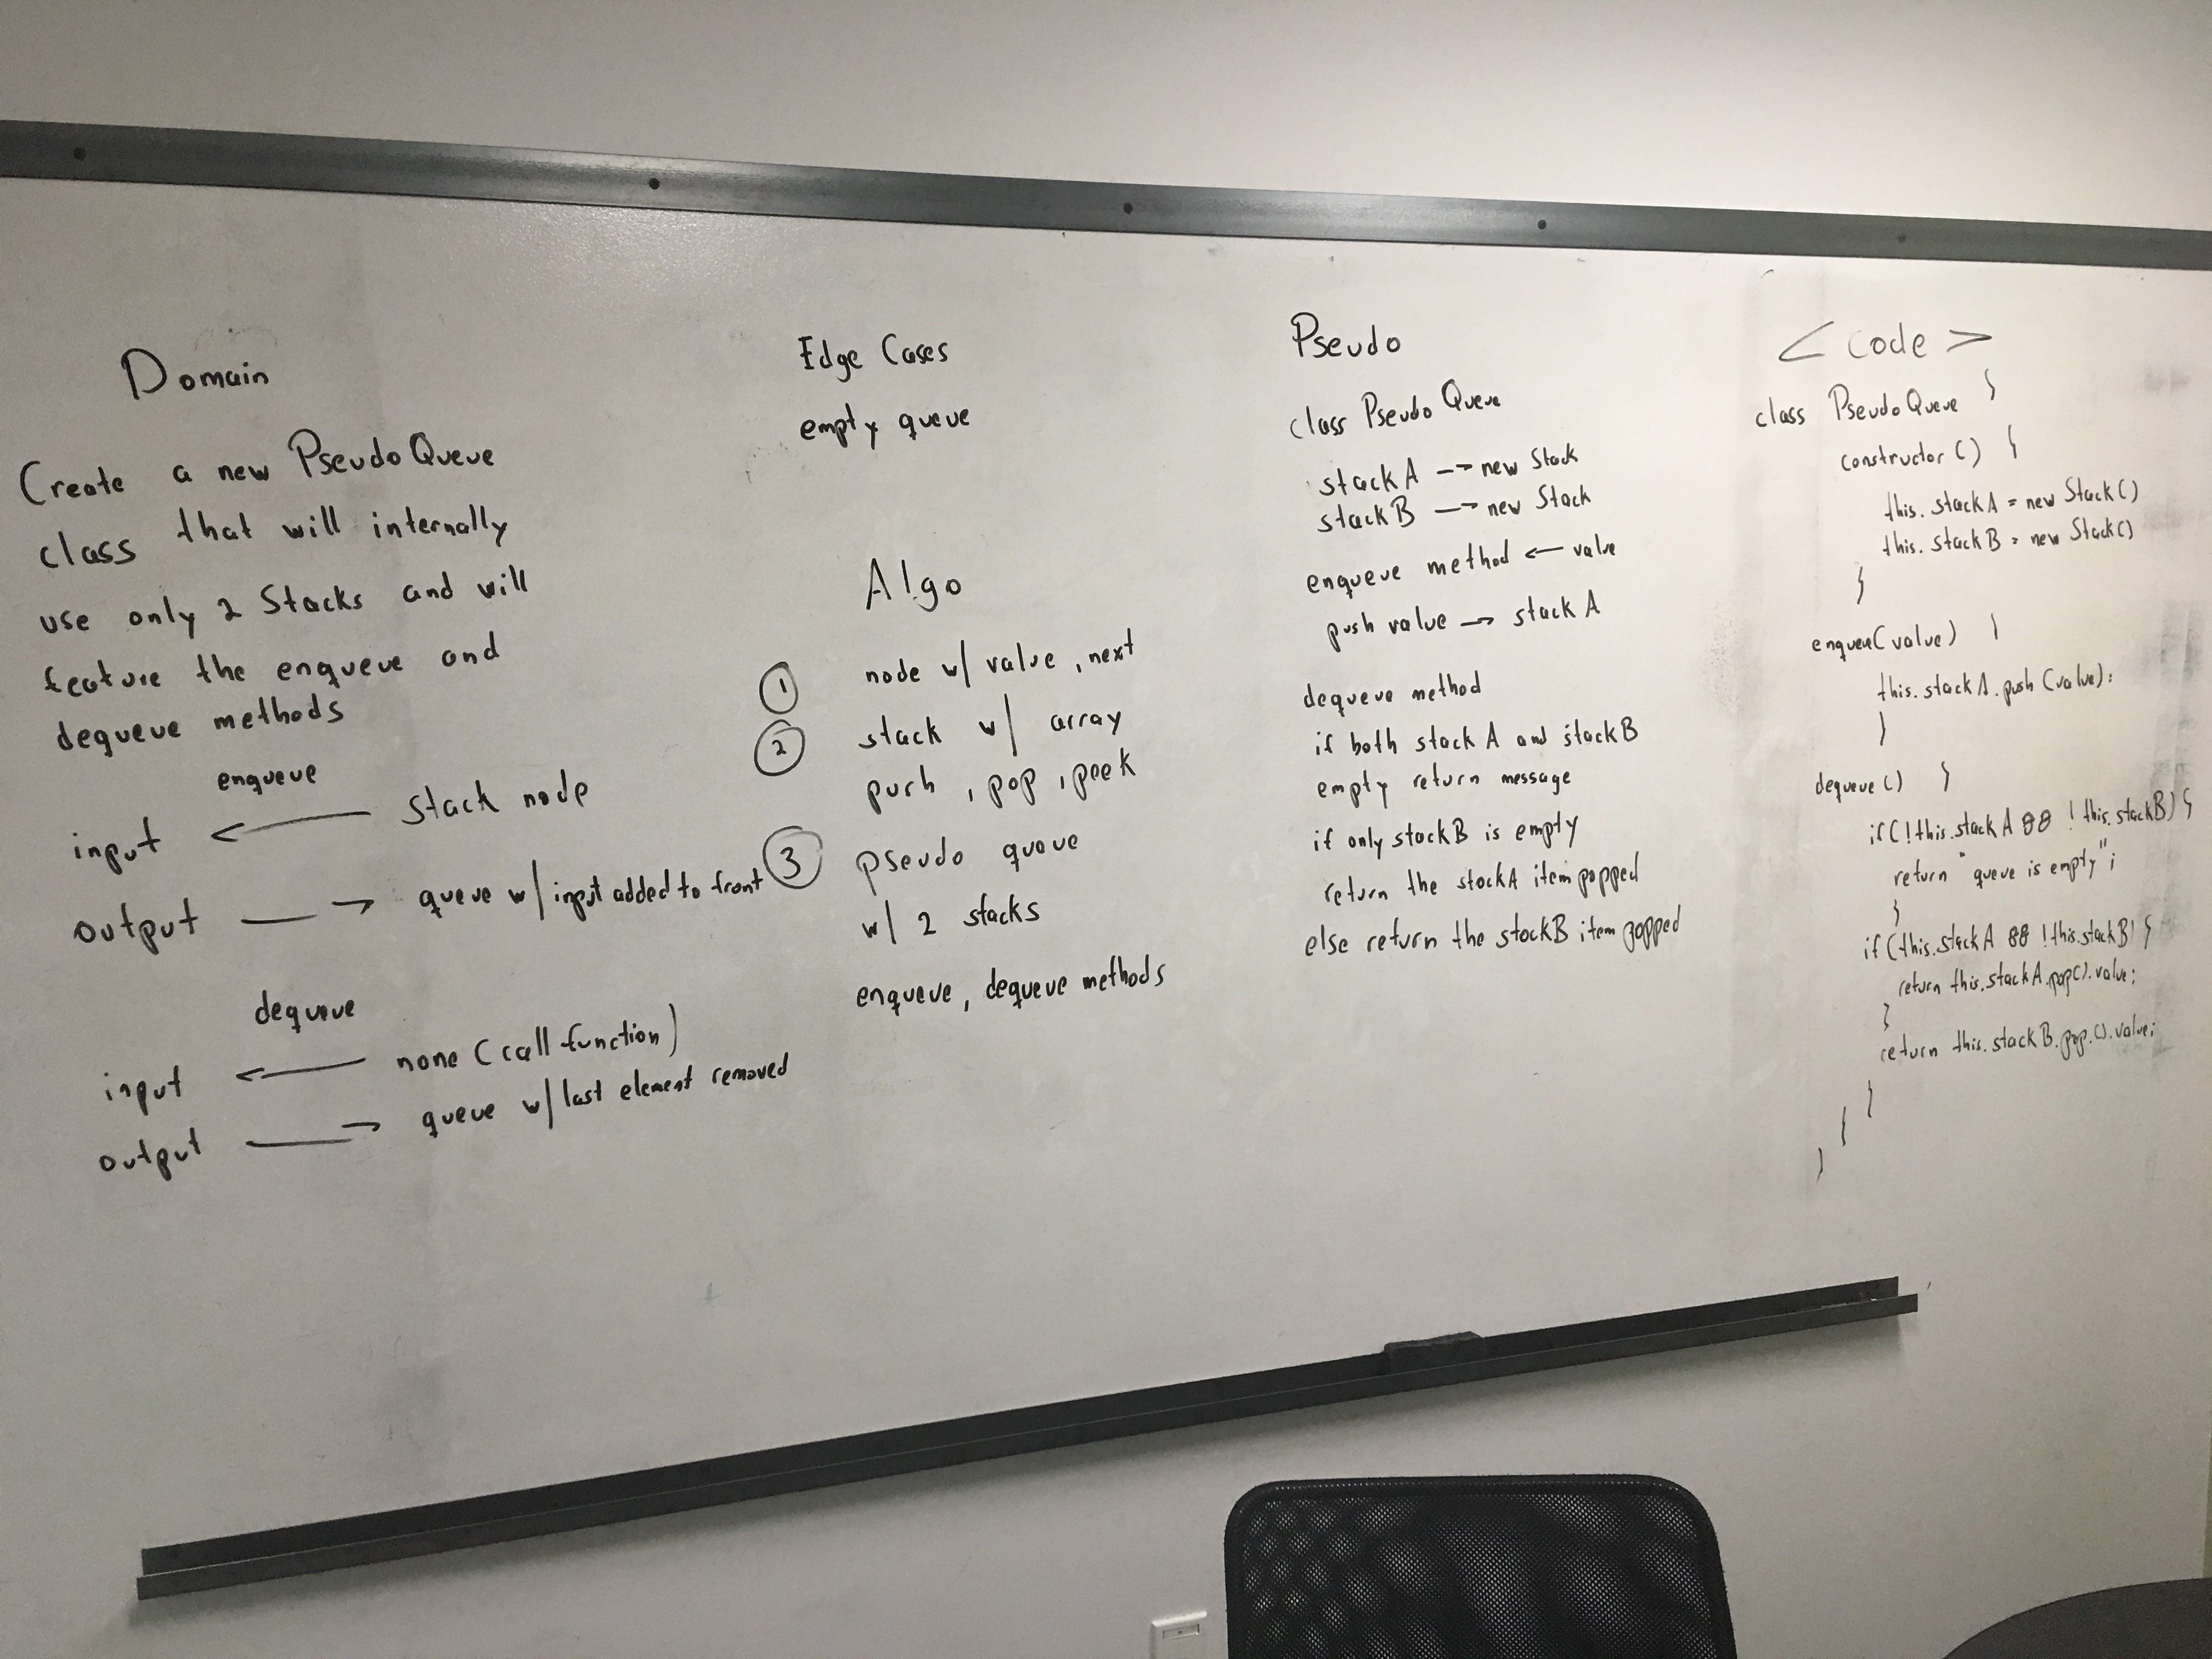 Domain
Create a new PseudoQueue
class that will internally
use only 2 Stacks and will
feature the enqueue and
dequeue methods
enqueue
input ← stack node
output → queue w/ input added to front
dequeue
input ← none (call function)
output → queue w/ last element removed
Edge Cases
empty queue
Algo
① node w/ value, next
② stack w/ array
push, pop, peek
③ pseudo queue
w/ 2 stacks
enqueue, dequeue methods
Pseudo
class PseudoQueue
stackA → new Stack
stackB → new Stack
enqueue method ← value
push value → stackA
dequeue method
if both stackA and stackB
empty return message
if only stackB is empty
return the stackA item popped
else return the stockB item popped
< code >
class PseudoQueue }
constructor() {
this.stackA = new Stack()
this.stackB = new Stack()
}
enqueue(value) }
this.stackA.push(value);
}
dequeue() }
if(!this.stackA && !this.stackB) {
return "queue is empty";
}
if(this.stackA && !this.stackB) {
return this.stackA.pop().value;
}
return this.stackB.pop.().value;
}
}
}